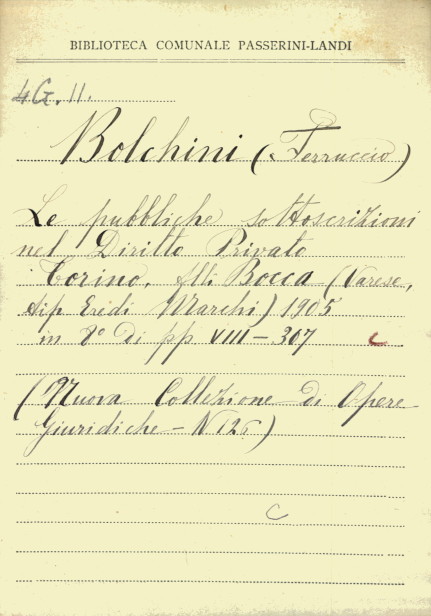 BIBLIOTECA COMUNALE PASSERINI-LANDI
4G. 11.
Bolchini (Ferruccio)
Le pubbliche sottoscrizioni
nel Diritto Privato
Torino, flli Bocca (Varese,
tip Eredi Marchi) 1905
in 8° di pp VIII-307 C
(Nuova Collezione di Opere
Giuridiche - N 126)
C